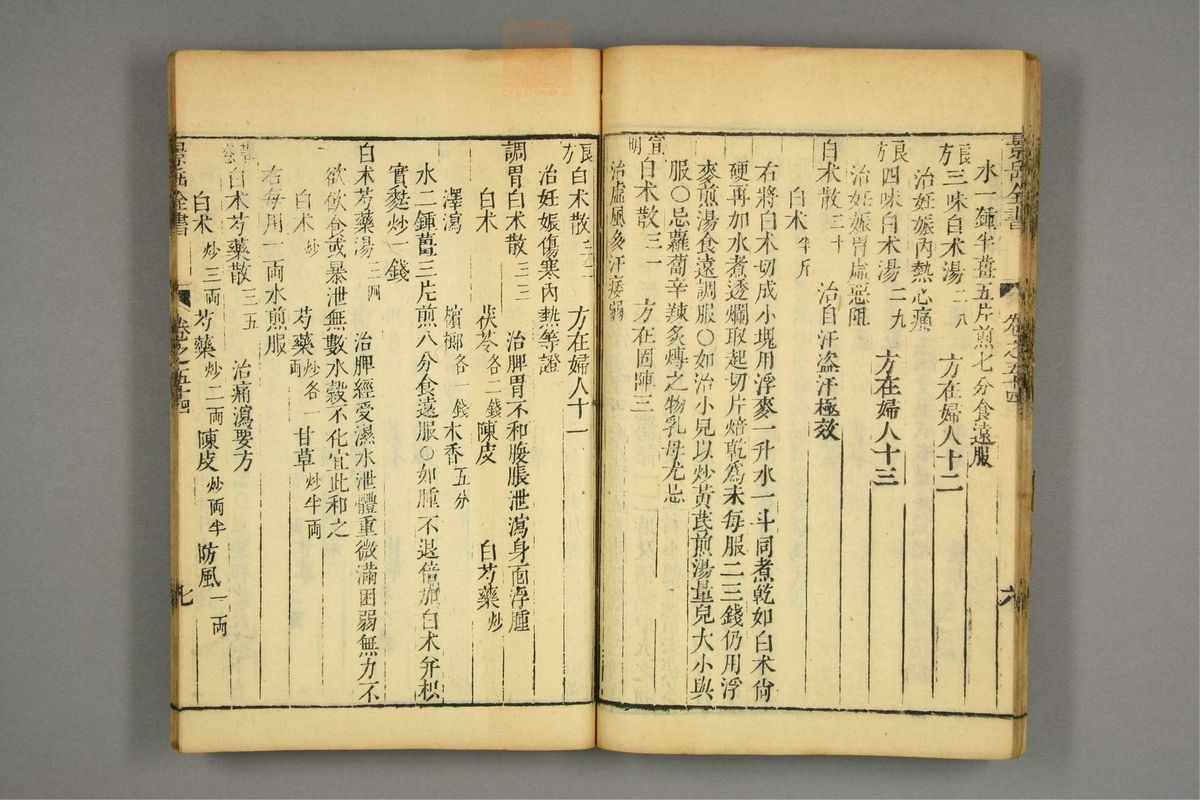 景岳全書 卷之五十四 六
水一鍾半薑五片煎七分食遠服
良方三味白术湯二八 方在婦人十二
治妊娠內熱心痛
良方四味白术湯二九 方在婦人十三
治妊娠胃虛惡阻
白术散三十 治自汗盜汗極效
白术半斤
右將白术切成小塊用浮麥一升水一斗同煮乾如白术尚
硬再加水煮透爛取起切片焙乾為末每服二三錢仍用浮
麥煎湯食遠調服○如治小兒以炒黃芪煎湯量兒大小與
服○忌蘿蔔辛辣炙煿之物乳母尤忌
宣明白术散三一 方在固陣三
治虛風多汗痿弱
良方白术散三二 方在婦人十一
治妊娠傷寒內熱等證
調胃白术散三三 治脾胃不和腹脹泄瀉身面浮腫
白术 茯苓各二錢 陳皮 白芍藥炒
澤瀉 檳榔各一錢 木香五分
水二鍾薑三片煎八分食遠服○如腫不退倍加白术并枳
實麩炒一錢
白术芍藥湯三四 治脾經受濕水泄體重微滿困弱無力不
欲飲食或暴泄無數水穀不化宜此和之
白术炒 芍藥炒各一兩 甘草炒半兩
右每用一兩水煎服
草窓白术芍藥散三五 治痛瀉要方
白术炒三兩 芍藥炒二兩 陳皮炒兩半 防風一兩
景岳全書 卷之五十四 七